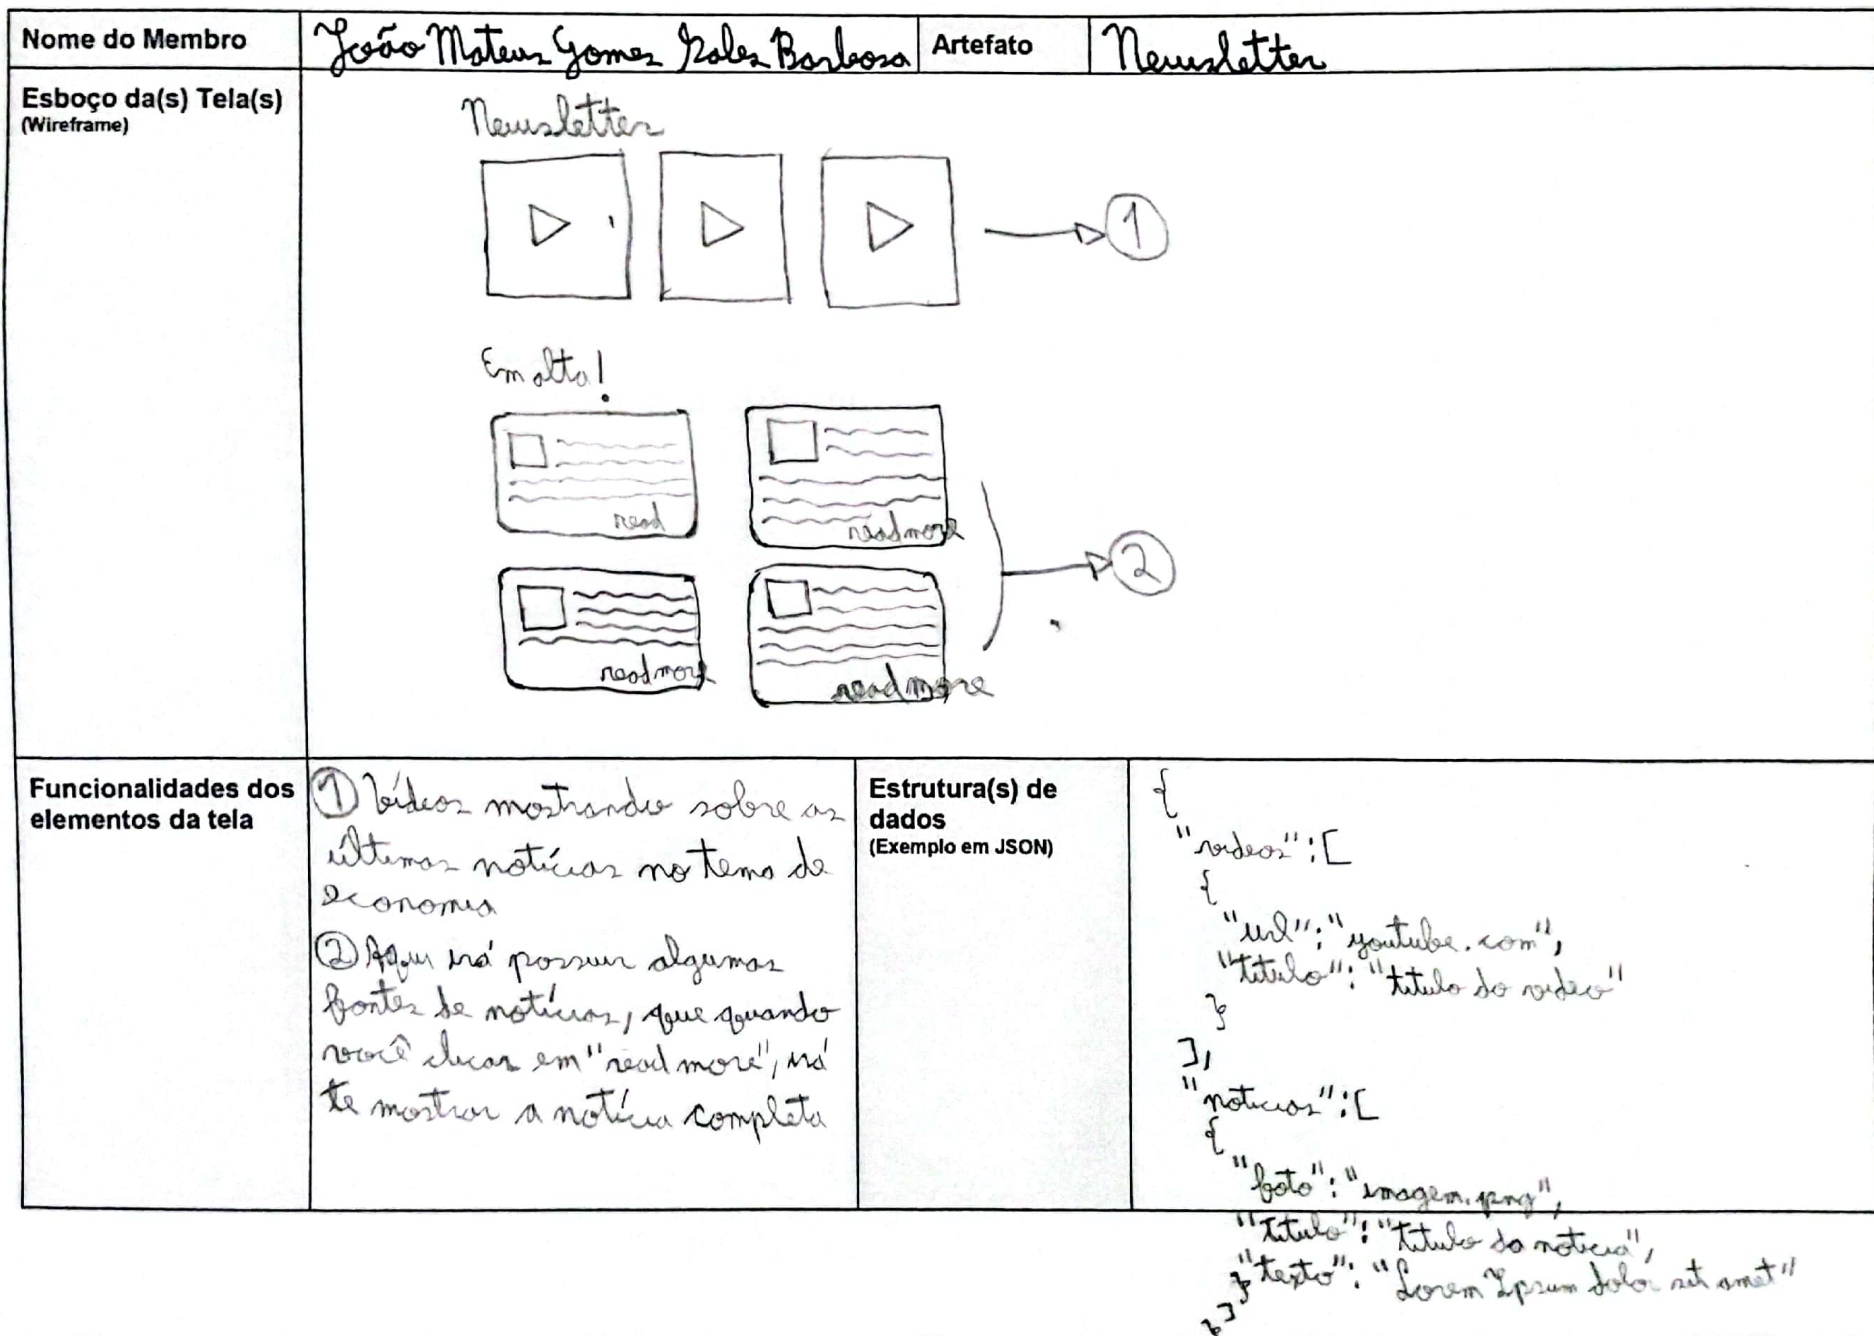 Nome do Membro
João Mateus Gomes Sales Barbosa
Artefato
Newsletter
Esboço da(s) Tela(s)
(Wireframe)
Newsletter
1
Em alta!
read
read more
2
read more
read more
Funcionalidades dos
elementos da tela
① Vídeos mostrando sobre as
últimas notícias no tema de
economia
② Aqui irá possuir algumas
fontes de notícias, que quando
você clicar em "read more", irá
te mostrar a notícia completa
Estrutura(s) de
dados
(Exemplo em JSON)
{
"videos": [
{
"url": "youtube.com",
"titulo": "titulo do video"
}
],
"noticias": [
{
"foto": "imagem.png",
"titulo": "titulo da noticia",
"texto": "Lorem Ipsum dolor sit amet"
}
]
}